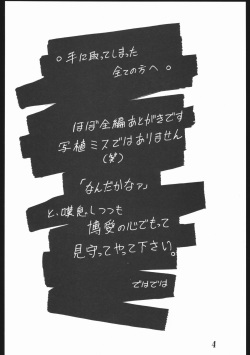 ○手に取ってしまった
全ての方へ○
ほぼ全編あとがきです
写植ミスではありません
(笑)
「なんだかなァ」
と、嘆息しつつも
博愛の心でもって
見守ってやって下さい。
ではでは
4